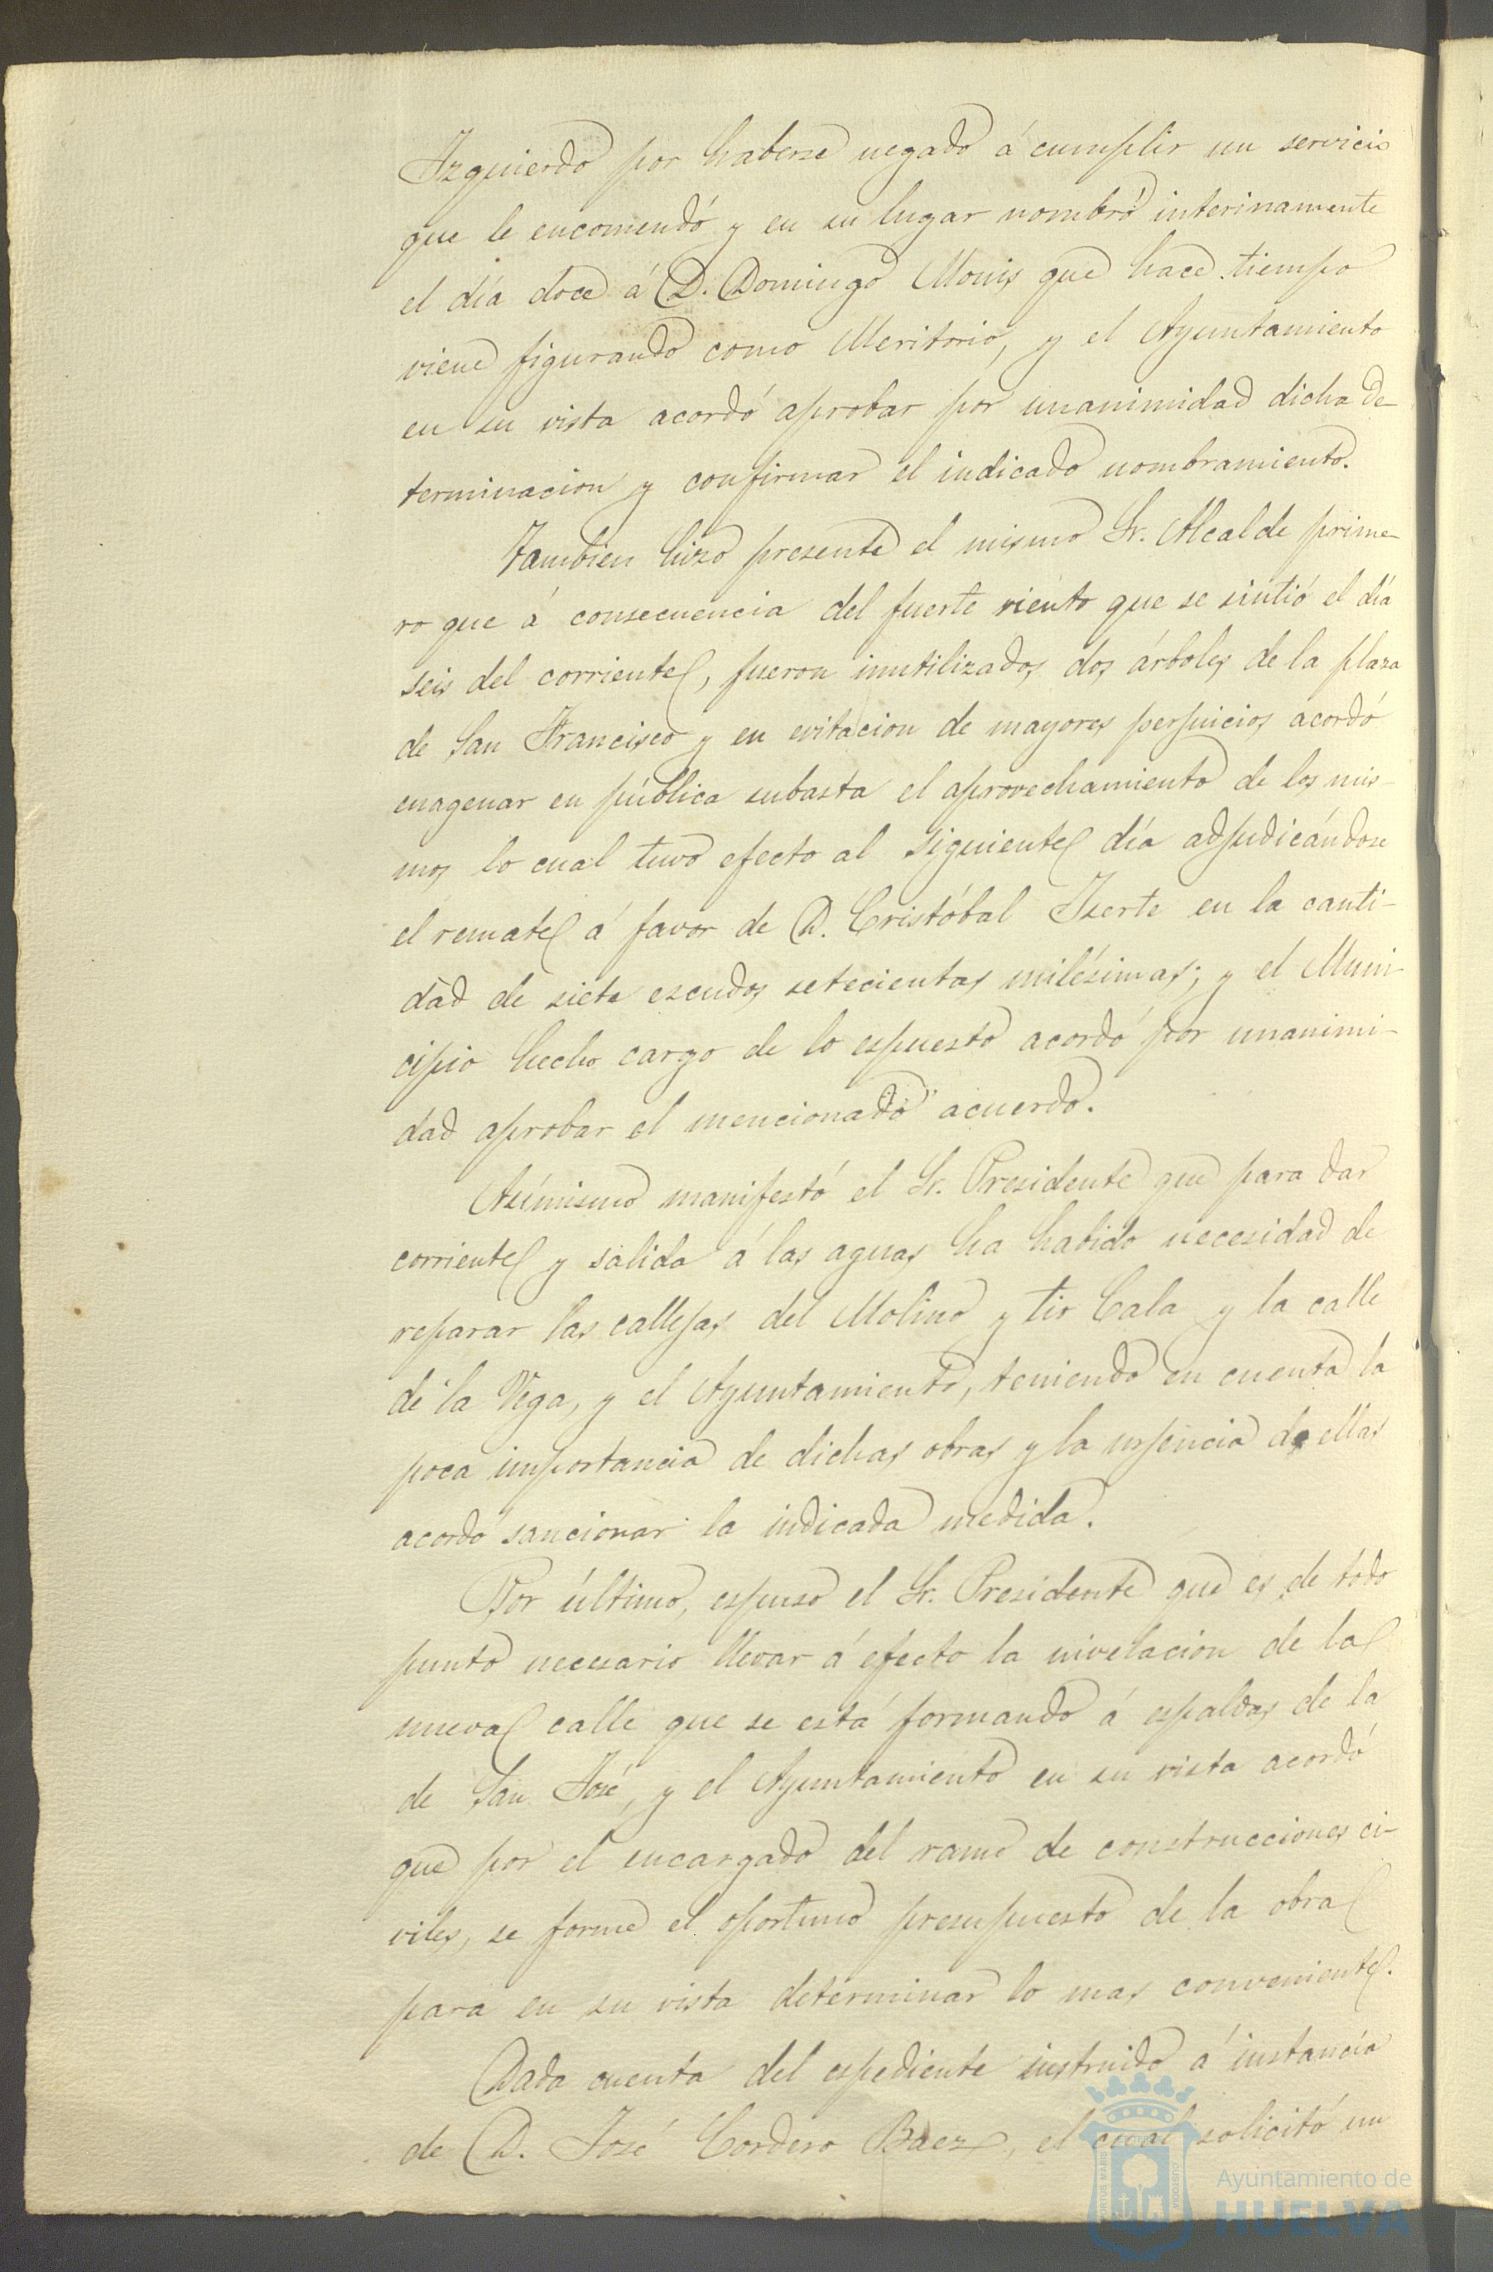 Izquierdo por haberse negado á cumplir un servicio
que le encomendó y en su lugar nombró interinamente
el día doce á D. Domingo Monis que hace tiempo
viene figurando como Meritorio, y el Ayuntamiento
en su vista acordó aprobar por unanimidad dicha de-
terminacion y confirmar el indicado nombramiento.
Tambien hizo presente el mismo Sr. Alcalde prime-
ro que á consecuencia del fuerte viento que se sintió el día
seis del corriente, fueron inutilizados dos árboles de la plaza
de San Francisco y en evitacion de mayores perjuicios acordó
enagenar en pública subasta el aprovechamiento de los mis-
mos lo cual tuvo efecto al siguiente día adjudicándose
el remate á favor de D. Cristóbal Iserte en la canti-
dad de siete escudos setecientas milésimas; y el Muni-
cipio hecho cargo de lo espuesto acordó por unanimi-
dad aprobar el mencionado acuerdo.
Asímismo manifestó el Sr. Presidente que para dar
corriente y salida á las aguas ha habido necesidad de
reparar las callejas del Molino y tio Cala y la calle
de la Vega, y el Ayuntamiento, teniendo en cuenta la
poca importancia de dichas obras y la urjencia de ellas
acordó sancionar la indicada medida.
Por último, espuso el Sr. Presidente que es de todo
punto necesario llevar á efecto la nivelacion de la
nueva calle que se está formando á espaldas de la
de San José, y el Ayuntamiento en su vista acordó
que por el encargado del ramo de construcciones ci-
viles, se forme el oportuno presupuesto de la obra
para en su vista determinar lo mas conveniente.
Dada cuenta del espediente instruido á instancia
de D. José Cordero Baez, el cual solicitó un
Ayuntamiento de
HUELVA